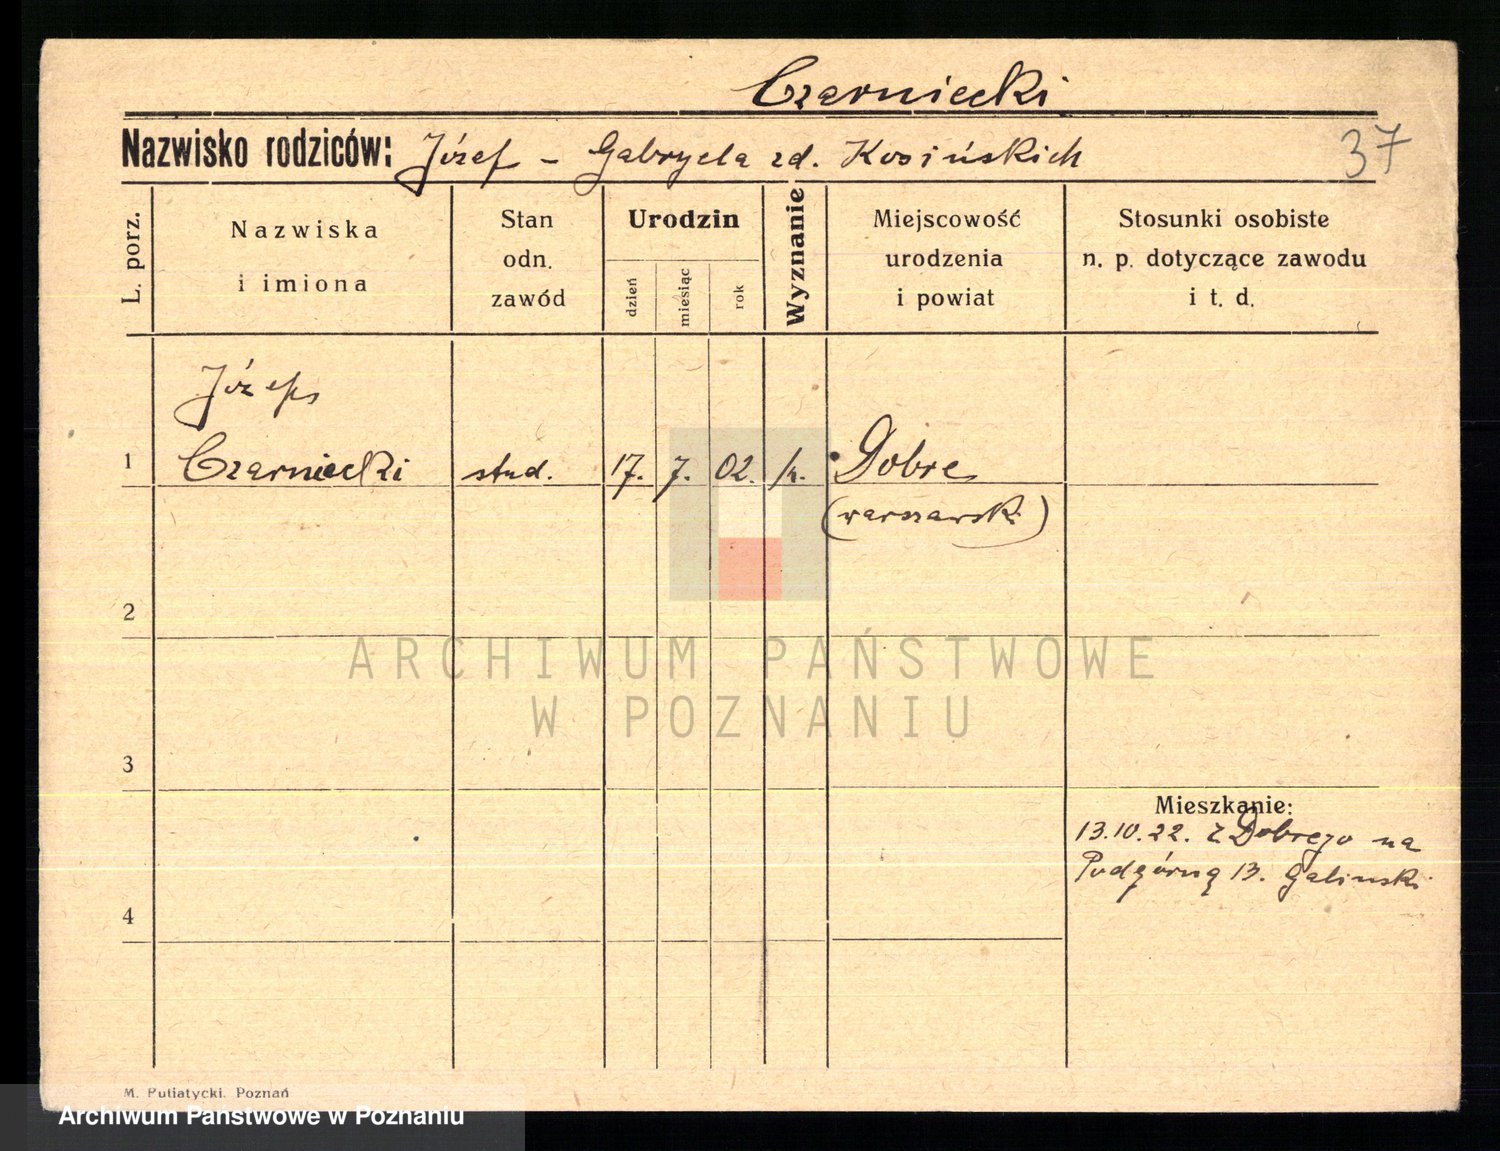 Czarniecki
Nazwisko rodziców: Józef - Gabryela zd. Kosińskich
37
L. porz.
Nazwiska
i imiona
Stan
odn.
zawód
Urodzin
dzień
miesiąc
rok
Wyznanie
Miejscowość
urodzenia
i powiat
Stosunki osobiste
n. p. dotyczące zawodu
i t. d.
Józef
1 Czarniecki stud. 17. 7. 02. k. Dobre
(warszawski)
2
ARCHIWUM PAŃSTWOWE
W POZNANIU
3
Mieszkanie:
13.10.22. z Dobrego na
Podgórną 13. Galinski
4
M. Putiatycki. Poznań
Archiwum Państwowe w Poznaniu